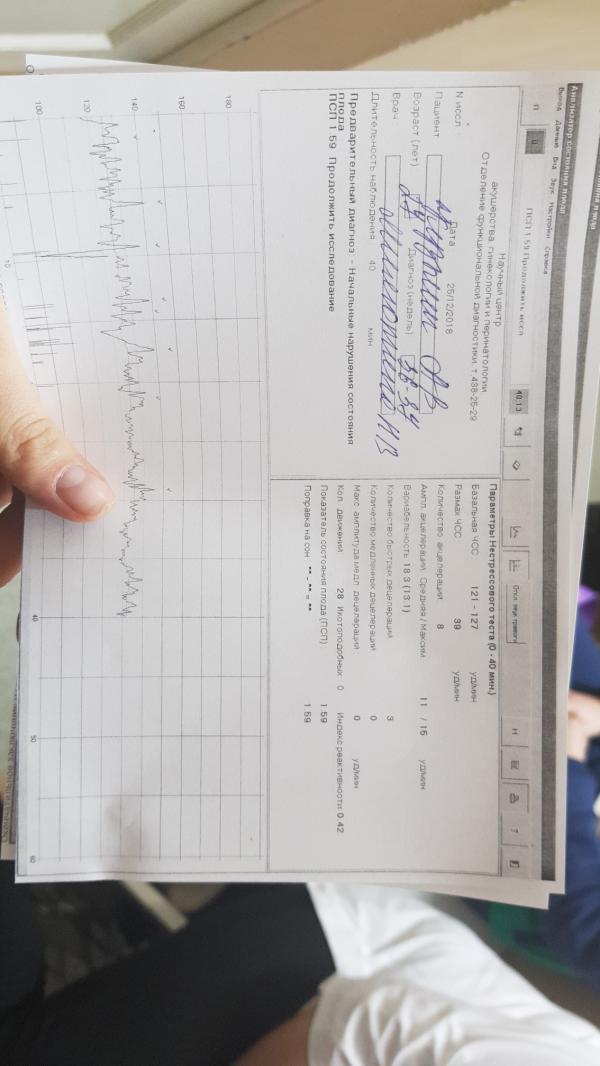 Анализатор состояния плода
Выход Данные Вид Звук Настройки Справка
П 0 ПСП 1.59 Продолжить иссл 40:13 Откл. звук. тревоги Н ?
Научный центр
акушерства, гинекологии и перинатологии
Отделение функциональной диагностики, т. 438-25-29
N иссл. Дата 25/12/2018
Пациент
Возраст (лет) Диагноз (недель) 36-37
Врач
Длительность наблюдения 40 мин
Предварительный диагноз: - Начальные нарушения состояния
плода
ПСП 1.59 Продолжить исследование
Параметры Нестрессового теста (0 - 40 мин.)
Базальная ЧСС 121 - 127 уд/мин
Размах ЧСС 39 уд/мин
Количество акцелераций 8
Ампл. акцелераций. Средняя / Максим. 11 / 15 уд/мин
Вариабельность 18.3 (13.1)
Количество быстрых децелераций 3
Количество медленных децелераций 0
Макс. амплитуда медл. децелераций 0 уд/мин
Кол. движений 28 Икотоподобных 0 Индекс реактивности 0.42
Показатель состояния плода (ПСП) 1.59
Поправка на сон ** - ** = ** 1.59
180
160
140
120
100
10 40 50 60